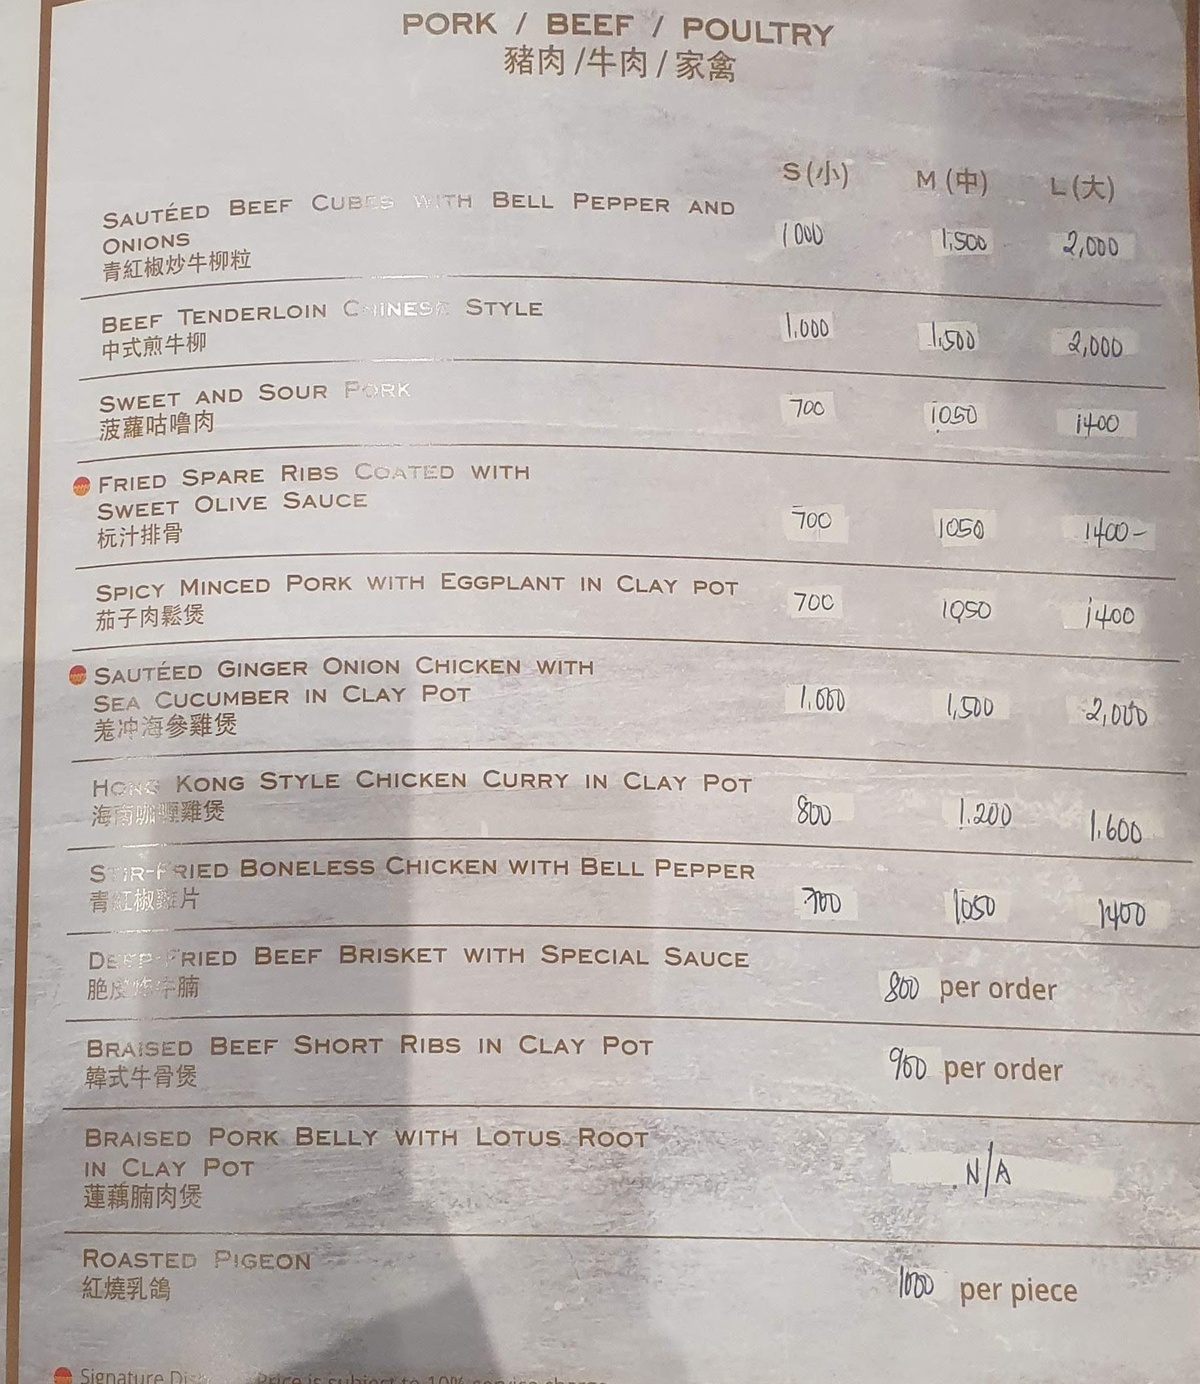 PORK / BEEF / POULTRY
豬肉 /牛肉 / 家禽
S (小) M (中) L (大)
SAUTÉED BEEF CUBES WITH BELL PEPPER AND
ONIONS
1000 1,500 2,000
青紅椒炒牛柳粒
BEEF TENDERLOIN CHINESE STYLE
1,000 1,500 2,000
中式煎牛柳
SWEET AND SOUR PORK
700 1050 1400
菠蘿咕嚕肉
FRIED SPARE RIBS COATED WITH
SWEET OLIVE SAUCE
700 1050 1400-
杬汁排骨
SPICY MINCED PORK WITH EGGPLANT IN CLAY POT
700 1050 1400
茄子肉鬆煲
SAUTÉED GINGER ONION CHICKEN WITH
SEA CUCUMBER IN CLAY POT
1,000 1,500 2,000
羗冲海參雞煲
HONG KONG STYLE CHICKEN CURRY IN CLAY POT
800 1.200 1.600
海南咖喱雞煲
STIR-FRIED BONELESS CHICKEN WITH BELL PEPPER
700 1050 1400
青紅椒雞片
DEEP-FRIED BEEF BRISKET WITH SPECIAL SAUCE
800 per order
脆皮炸牛腩
BRAISED BEEF SHORT RIBS IN CLAY POT
900 per order
韓式牛骨煲
BRAISED PORK BELLY WITH LOTUS ROOT
IN CLAY POT
N/A
蓮藕腩肉煲
ROASTED PIGEON
1000 per piece
紅燒乳鴿
Signature Dish Price is subject to 10% service charge